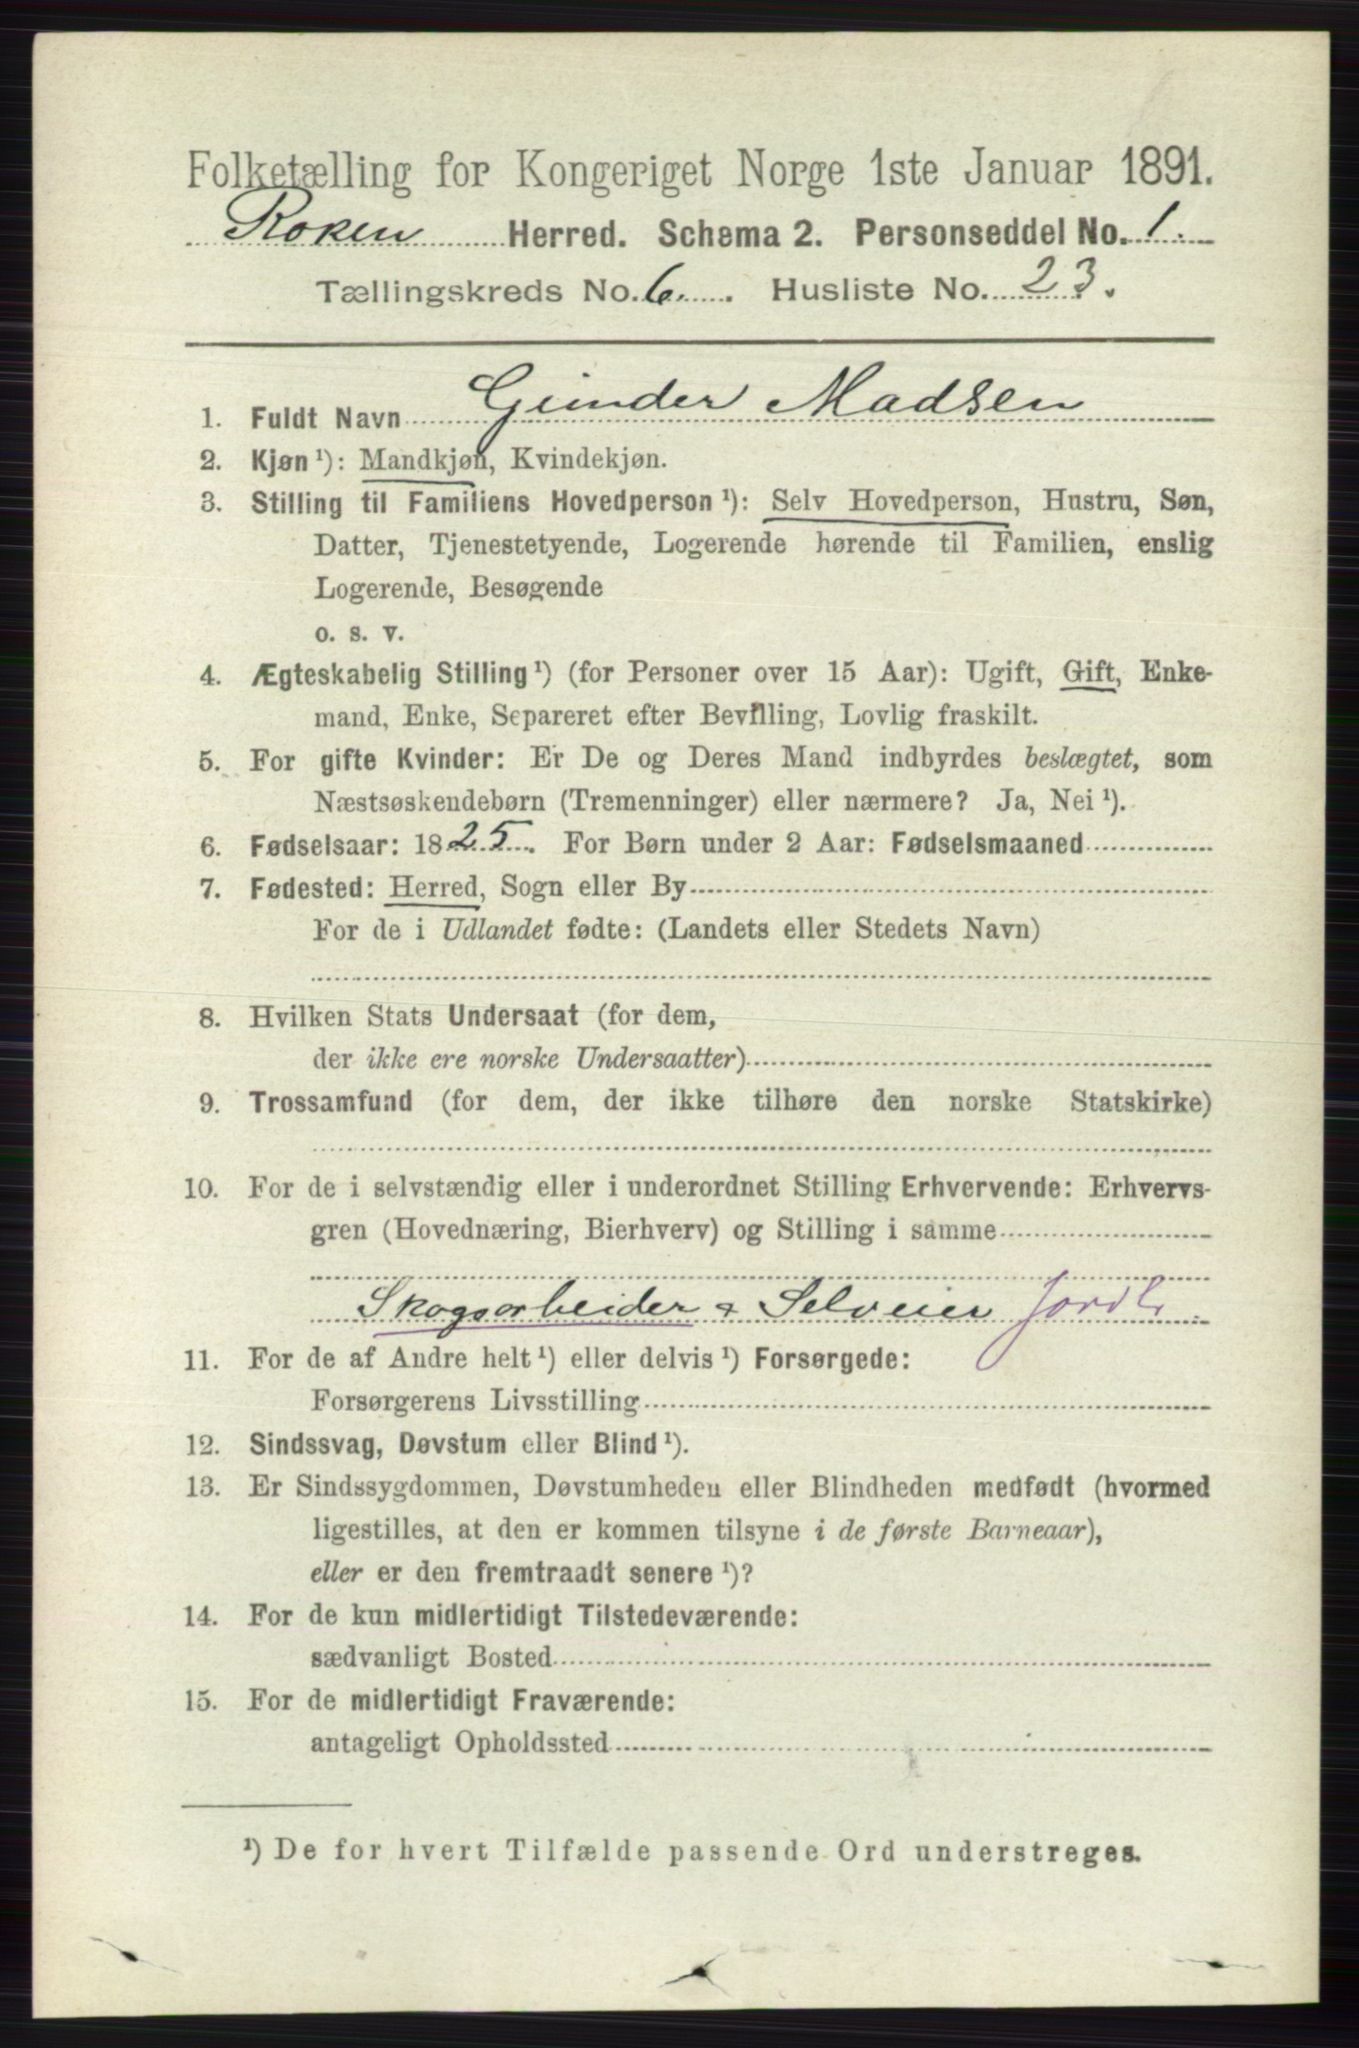 Folketælling for Kongeriget Norge 1ste Januar 1891.
Røken Herred. Schema 2. Personseddel No. 1.
Tællingskreds No. 6. Husliste No. 23.
1. Fuldt Navn Gunder Madsen
2. Kjøn ¹): Mandkjøn, Kvindekjøn.
3. Stilling til Familiens Hovedperson ¹): Selv Hovedperson, Hustru, Søn,
Datter, Tjenestetyende, Logerende hørende til Familien, enslig
Logerende, Besøgende
o. s. v.
4. Ægteskabelig Stilling ¹) (for Personer over 15 Aar): Ugift, Gift, Enke-
mand, Enke, Separeret efter Bevilling, Lovlig fraskilt.
5. For gifte Kvinder: Er De og Deres Mand indbyrdes beslægtet, som
Næstsøskendebørn (Tremenninger) eller nærmere? Ja, Nei ¹).
6. Fødselsaar: 1825. For Børn under 2 Aar: Fødselsmaaned
7. Fødested: Herred, Sogn eller By
For de i Udlandet fødte: (Landets eller Stedets Navn)
8. Hvilken Stats Undersaat (for dem,
der ikke ere norske Undersaatter)
9. Trossamfund (for dem, der ikke tilhøre den norske Statskirke)
10. For de i selvstændig eller i underordnet Stilling Erhvervende: Erhvervs-
gren (Hovednæring, Bierhverv) og Stilling i samme
Skogsarbeider & Selveier Jordb.
11. For de af Andre helt ¹) eller delvis ¹) Forsørgede:
Forsørgerens Livsstilling
12. Sindssvag, Døvstum eller Blind ¹).
13. Er Sindssygdommen, Døvstumheden eller Blindheden medfødt (hvormed
ligestilles, at den er kommen tilsyne i de første Barneaar),
eller er den fremtraadt senere ¹)?
14. For de kun midlertidigt Tilstedeværende:
sædvanligt Bosted
15. For de midlertidigt Fraværende:
antageligt Opholdssted
¹) De for hvert Tilfælde passende Ord understreges.